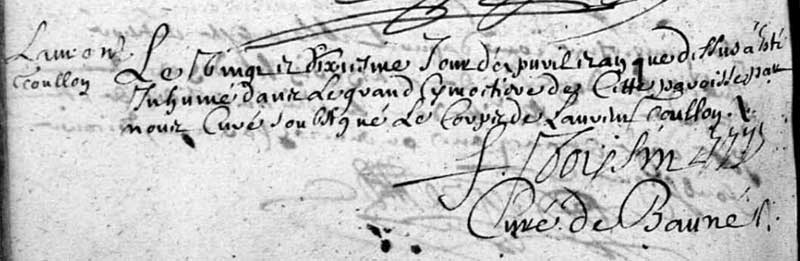 Lauren
Coullon
Le Vingt et dixiesme Jour d'epuvril an que dessus a esté
Inhumé dans le grand Cymetiere de Cette paroisse par
nous Curé soubsigné Le Corps de Laurent Coullon.
Curé de Bauné